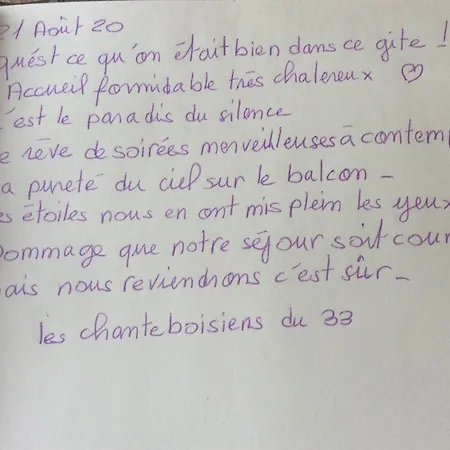 21 Août 20
qu'est ce qu'on était bien dans ce gite !
Accueil formidable très chaleneux ♡
c'est le paradis du silence
le rêve de soirées merveilleuses à contemp
la pureté du ciel sur le balcon -
les étoiles nous en ont mis plein les yeux
Dommage que notre séjour soit cour
mais nous reviendrons c'est sûr -
les chanteboisiens du 33